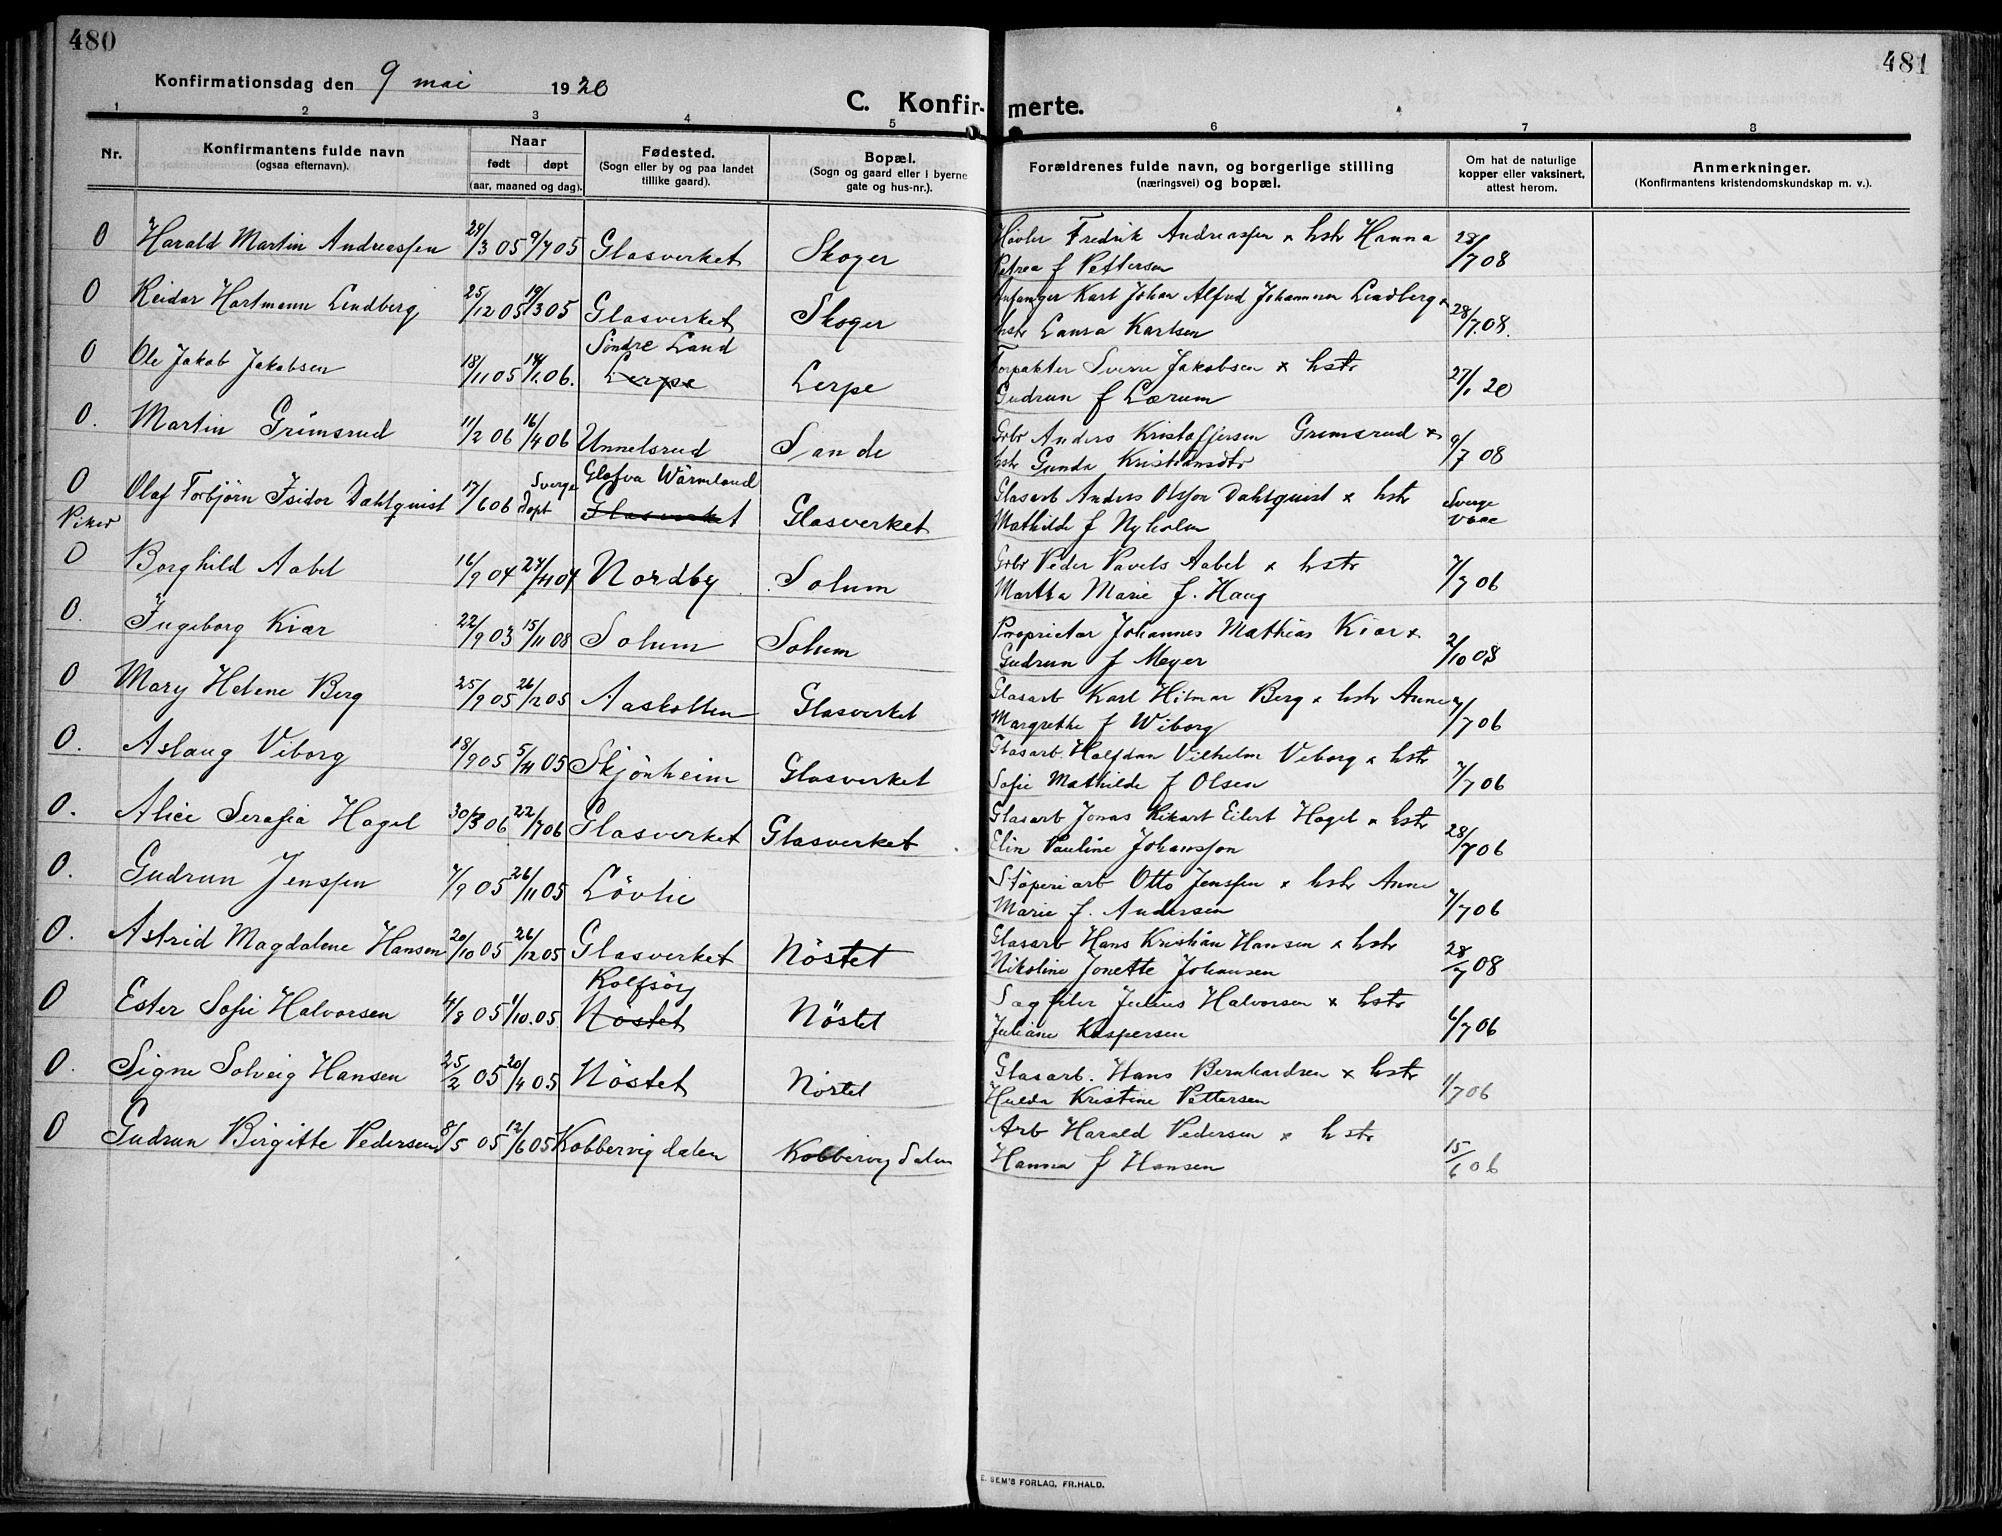 480
481
Konfirmationsdag den 9 mai 1920
C. Konfirmerte.
1 2 3 4 5 6 7 8
Nr.
Konfirmantens fulde navn
(ogsaa efternavn).
Naar
født døpt
(aar, maaned og dag).
Fødested.
(Sogn eller by og paa landet
tillike gaard).
Bopæl.
(Sogn og gaard eller i byerne
gate og hus-nr.).
Forældrenes fulde navn, og borgerlige stilling
(næringsvei) og bopæl.
Om hat de naturlige
kopper eller vaksinert,
attest herom.
Anmerkninger.
(Konfirmantens kristendomskundskap m. v.).
0 Harald Martin Andreassen 24/3 05 9/7 05 Glasverket Skoger Høvler Fredrik Andreassen x hstr Hanna 28/7 08
Petrea f Pettersen
0 Reidar Hartmann Lindberg 25/12 05 19/3 05 Glasverket Skoger Karl Johan Alfred Johannsen Lindberg x 28/7 08.
hstr Laura Karlsen
Søndre Land
0 Ole Jakob Jakobsen 18/11 05 14/1 06. Lerpe Lerpe Forpakter Sverre Jakobsen x hstr 27/1 20
Gudrun f Lærum
0. Martin Grimsrud 11/2 06 16/4 06 Unnelsrud Sande Gbr Anders Kristoffersen Grimsrud x 9/7 08
hstr Gunda Kristiansdtr
0 Olaf Torbjörn Isidor Dahlquist 17/6 06 Sverge Døpt Glafva Wärmland Glasverket Glasverket Glasarb Anders Olsson Dahlquist x hstr Sverge vacc
Mathilde f Nyholm
Piker
0 Borghild Aabel 16/9 04 24/11 04 Nordby Solum Gbr Peder Pavels Aabel x hstr 7/7 06
Martha Marie f. Haug
0. Ingeborg Kiær 22/9 03 15/11 08 Solum Solum Proprietær Johannes Mathias Kiær x 2/10 08
Gudrun f Meyer
0 Mary Helene Berg 25/9 05 26/12 05 Aaskollen Glasverket Glasarb Karl Hilmar Berg x hstr Anne 7/7 06
Margrethe f Wiborg
0. Aslaug Viborg 18/9 05 5/11 05 Skjönheim Glasverket Glasarb. Halfdan Vilhelm Viborg x hstr 7/7 06
Sofie Mathilde f Olsen
0. Alice Serafia Hagel 30/3 06 22/7 06 Glasverket Glasverket Glasarb Jonas Rikart Eilert Hagel x hstr 28/7 06
Elin Pauline Johansson
0. Gudrun Jenssen 7/9 05 26/11 05 Lövlie Støperiarb Otto Jenssen x hstr Anne 7/7 06
Marie f. Andersen
0. Astrid Magdalene Hansen 20/10 05 26/12 05 Glasverket Nöstet Glasarb Hans Kristian Hansen x hstr 28/7 08
Nikoline Jonette Johansen
Rolfsöy
0 Ester Sofie Halvorsen 4/8 05 1/10.05 Nöstet Nöstet Sagfiler Julius Halvorsen x hstr 6/7 06
Juliane Kaspersen
0. Signe Solveig Hansen 25/2 05 20/4 05 Nöstet Nöstet Glasarb. Hans Bernhardsen x hstr 1/7 06
Hulda Kristine Pettersen
0 Gudrun Birgitte Pedersen 8/5 05 12/6 05 Kobbervigdalen Kobbervigdalen Arb Harald Pedersen x hstr 15/6 06
Hanna f Hansen
E. SEM'S FORLAG, FR.HALD.